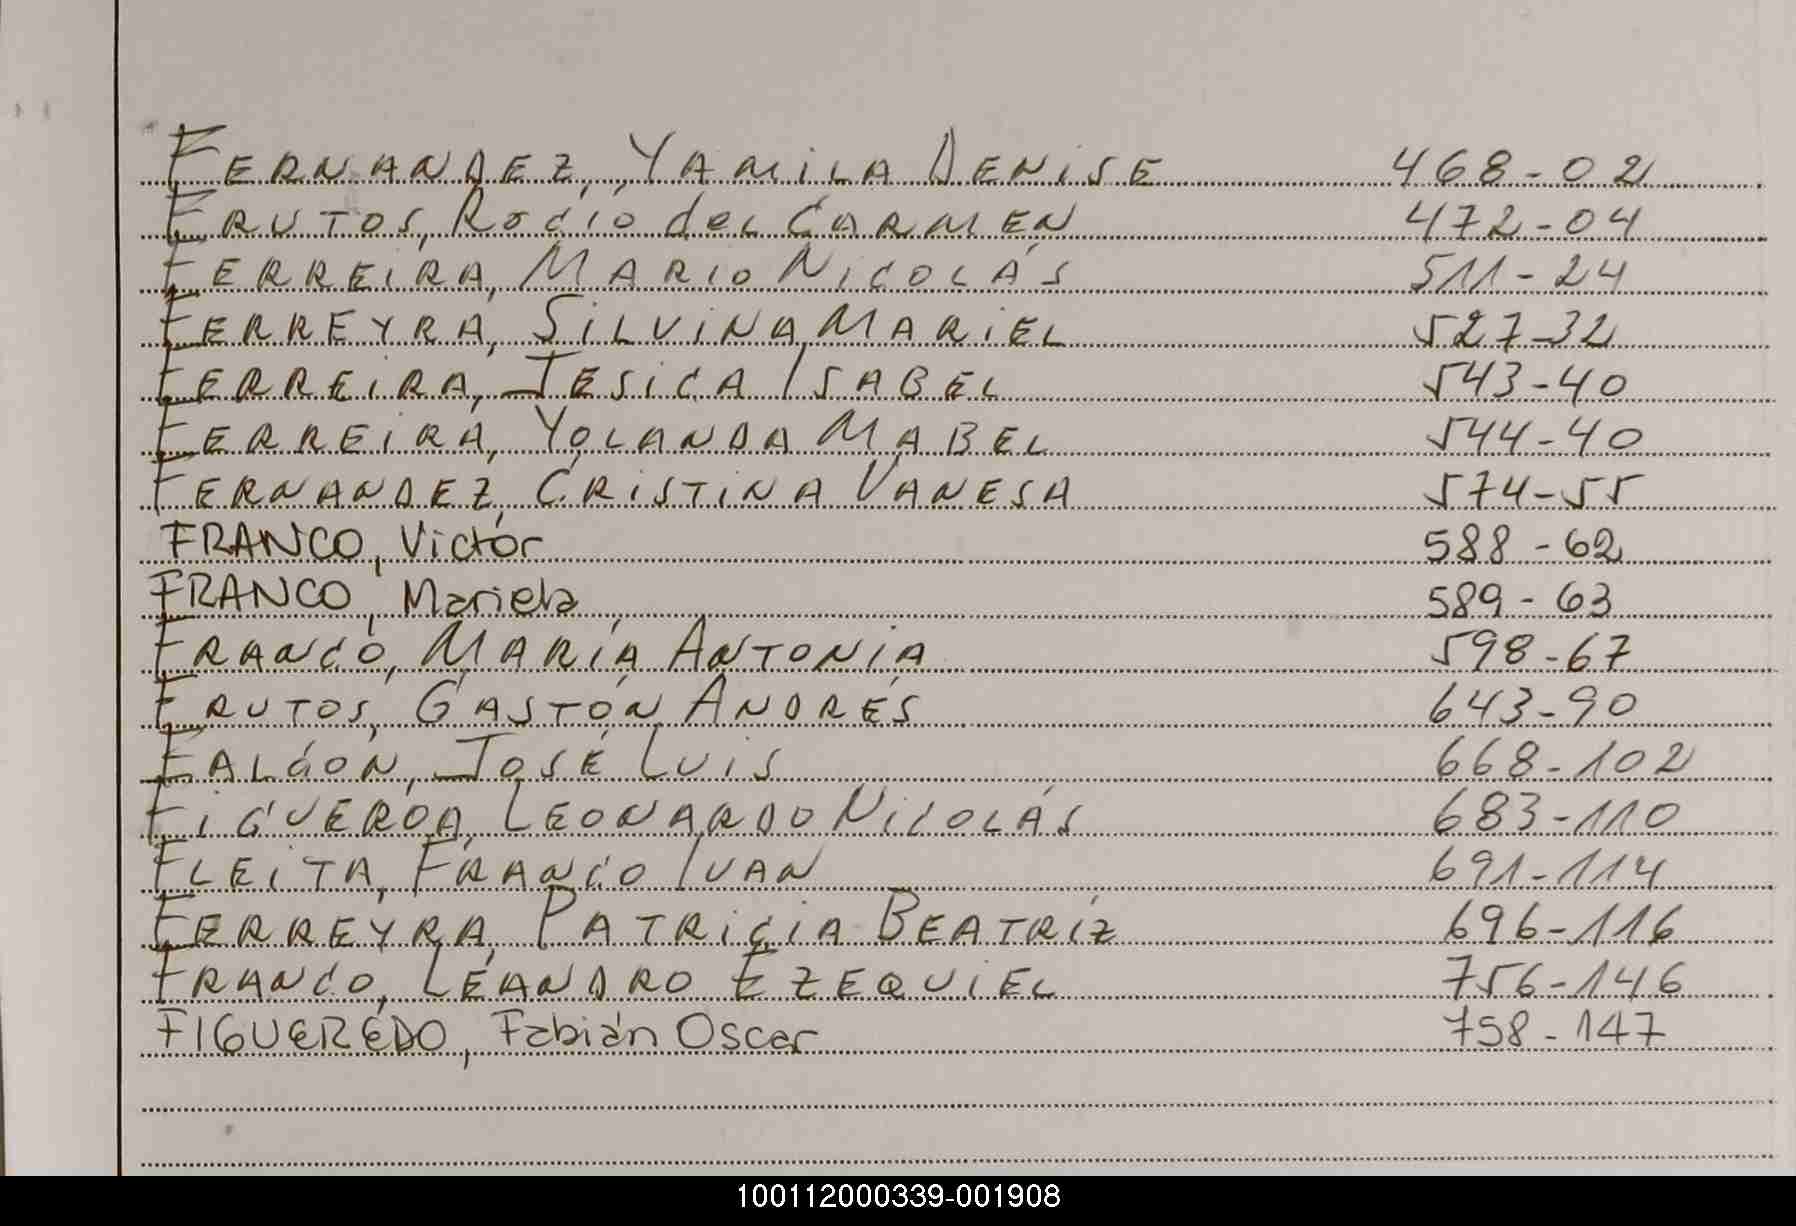 FERNANDEZ, YAMILA DENISE 468-02
FRUTOS, ROCÍO del CARMEN 472-04
FERREIRA, MARIO NICOLÁS 511-24
FERREYRA, SILVINA MARIEL 527-32
FERREIRA, JESICA ISABEL 543-40
FERREIRA, YOLANDA MABEL 544-40
FERNANDEZ, CRISTINA VANESA 574-55
FRANCO, Victor 588-62
FRANCO, Mariela 589-63
FRANCO, MARÍA ANTONIA 598-67
FRUTOS, GASTÓN ANDRÉS 643-90
FALCÓN, JOSÉ LUIS 668-102
FIGUEROA, LEONARDO NICOLÁS 683-110
FLEITA, FRANCO IVAN 691-114
FERREYRA, PATRICIA BEATRÍZ 696-116
FRANCO, LEANDRO EZEQUIEL 756-146
FIGUEREDO, Fabián Oscar 758-147
100112000339-001908